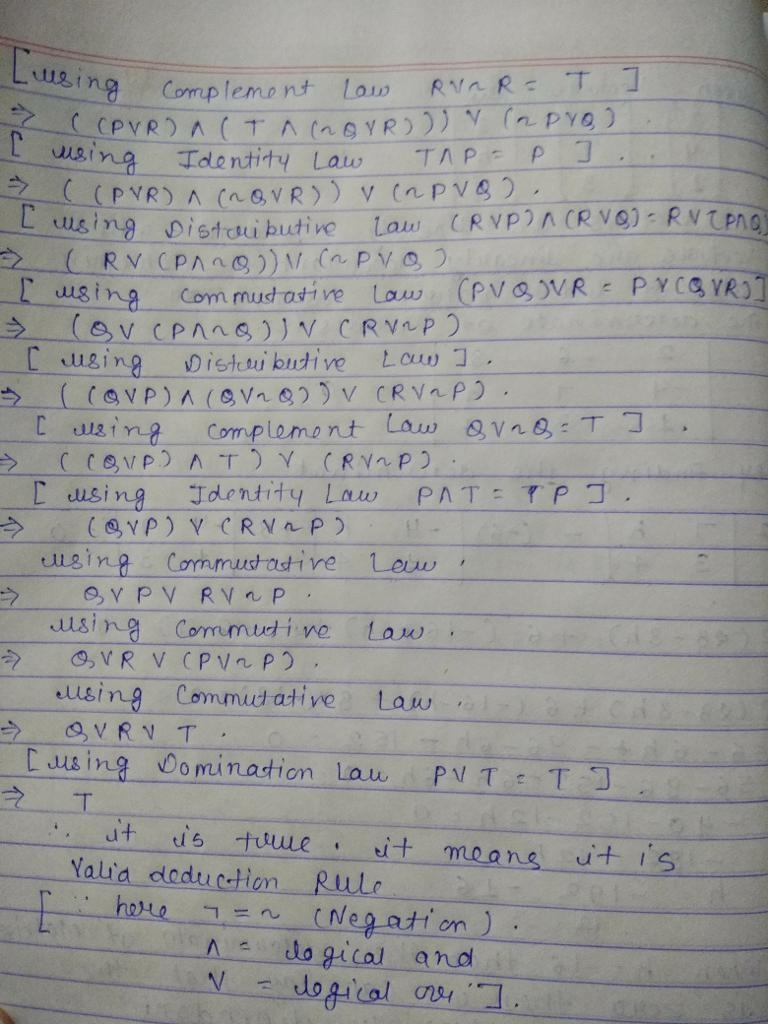 [using Complement Law R∨~R = T ]
⇒ ((P∨R) ∧ (T ∧ (~Q∨R))) ∨ (~P∨Q) .
[ using Identity Law T∧P = P ] . .
⇒ ((P∨R) ∧ (~Q∨R)) ∨ (~P∨Q) .
[ using Distributive Law (R∨P)∧(R∨Q)=R∨(P∧Q)
⇒ (R∨(P∧~Q))∨(~P∨Q)
[ using commutative Law (P∨Q)∨R = P∨(Q∨R)]
⇒ (Q∨(P∧~Q))∨(R∨~P)
[using Distributive Law].
⇒ ((Q∨P)∧(Q∨~Q))∨(R∨~P).
[ using complement Law Q∨~Q=T ] .
⇒ ((Q∨P)∧T)∨(R∨~P).
[ using Identity Law P∧T = P ] .
⇒ (Q∨P)∨(R∨~P)
using Commutative Law .
⇒ Q∨P∨R∨~P .
using Commutive Law .
⇒ Q∨R∨(P∨~P) .
using Commutative Law .
⇒ Q∨R∨T .
[using Domination Law P∨T = T ] .
⇒ T
∴ it is true . it means it is
Valid deduction Rule
[∵ here ¬ = ~ (Negation) .
∧ = logical and
∨ = logical or ].